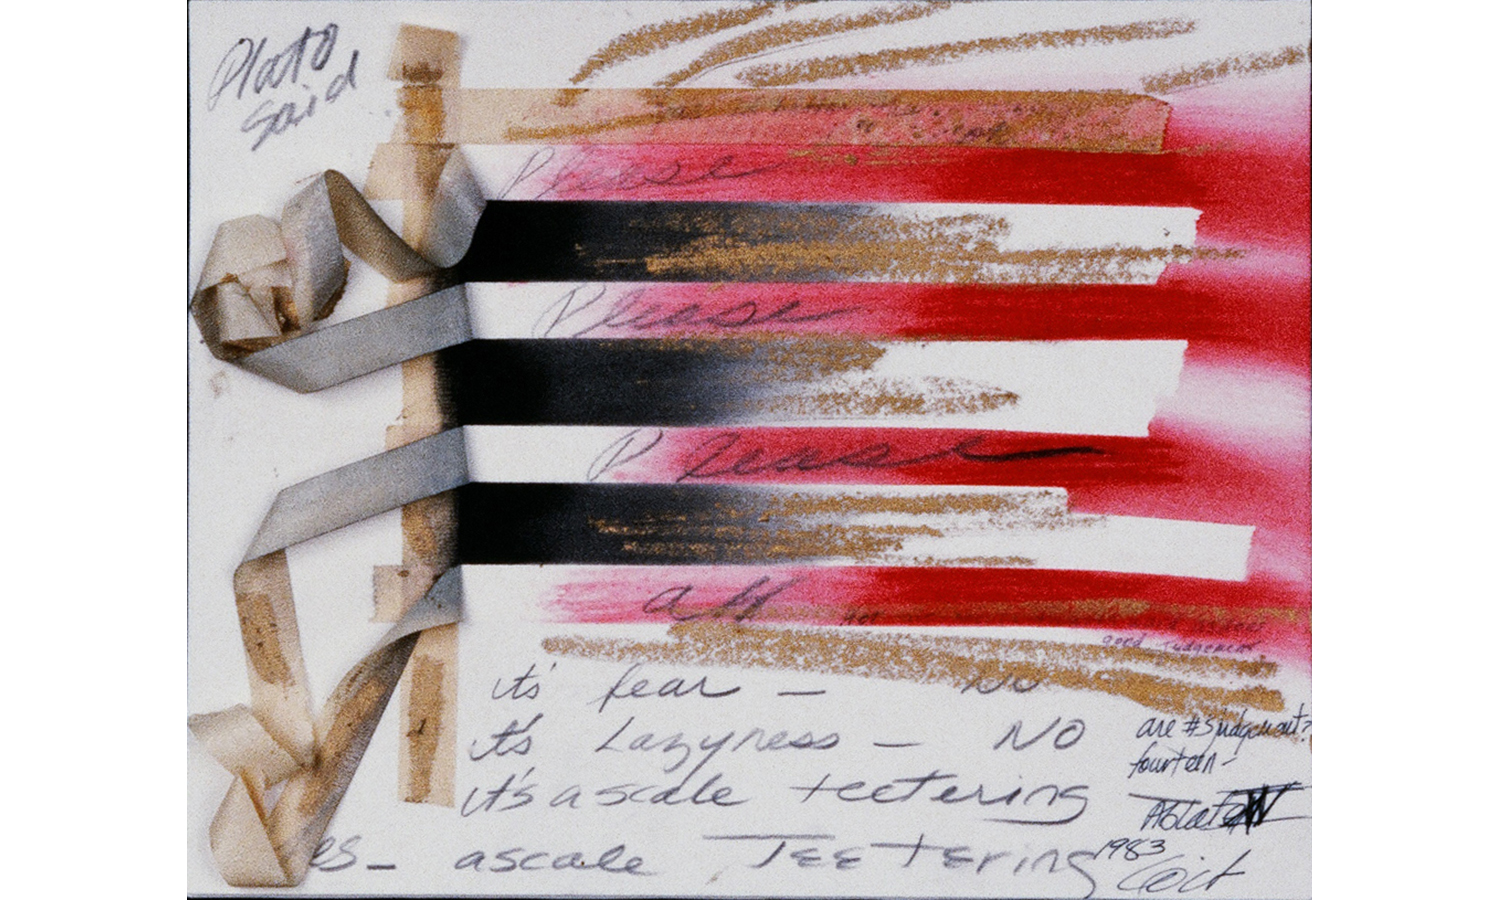 Plato
said
Please
Please
Please
all
good judgement
it's fear — No
it's Lazyness — NO
it's a scale teetering
es — a scale TEETERING
are #s judgement?
fourteen -
1983
Coit